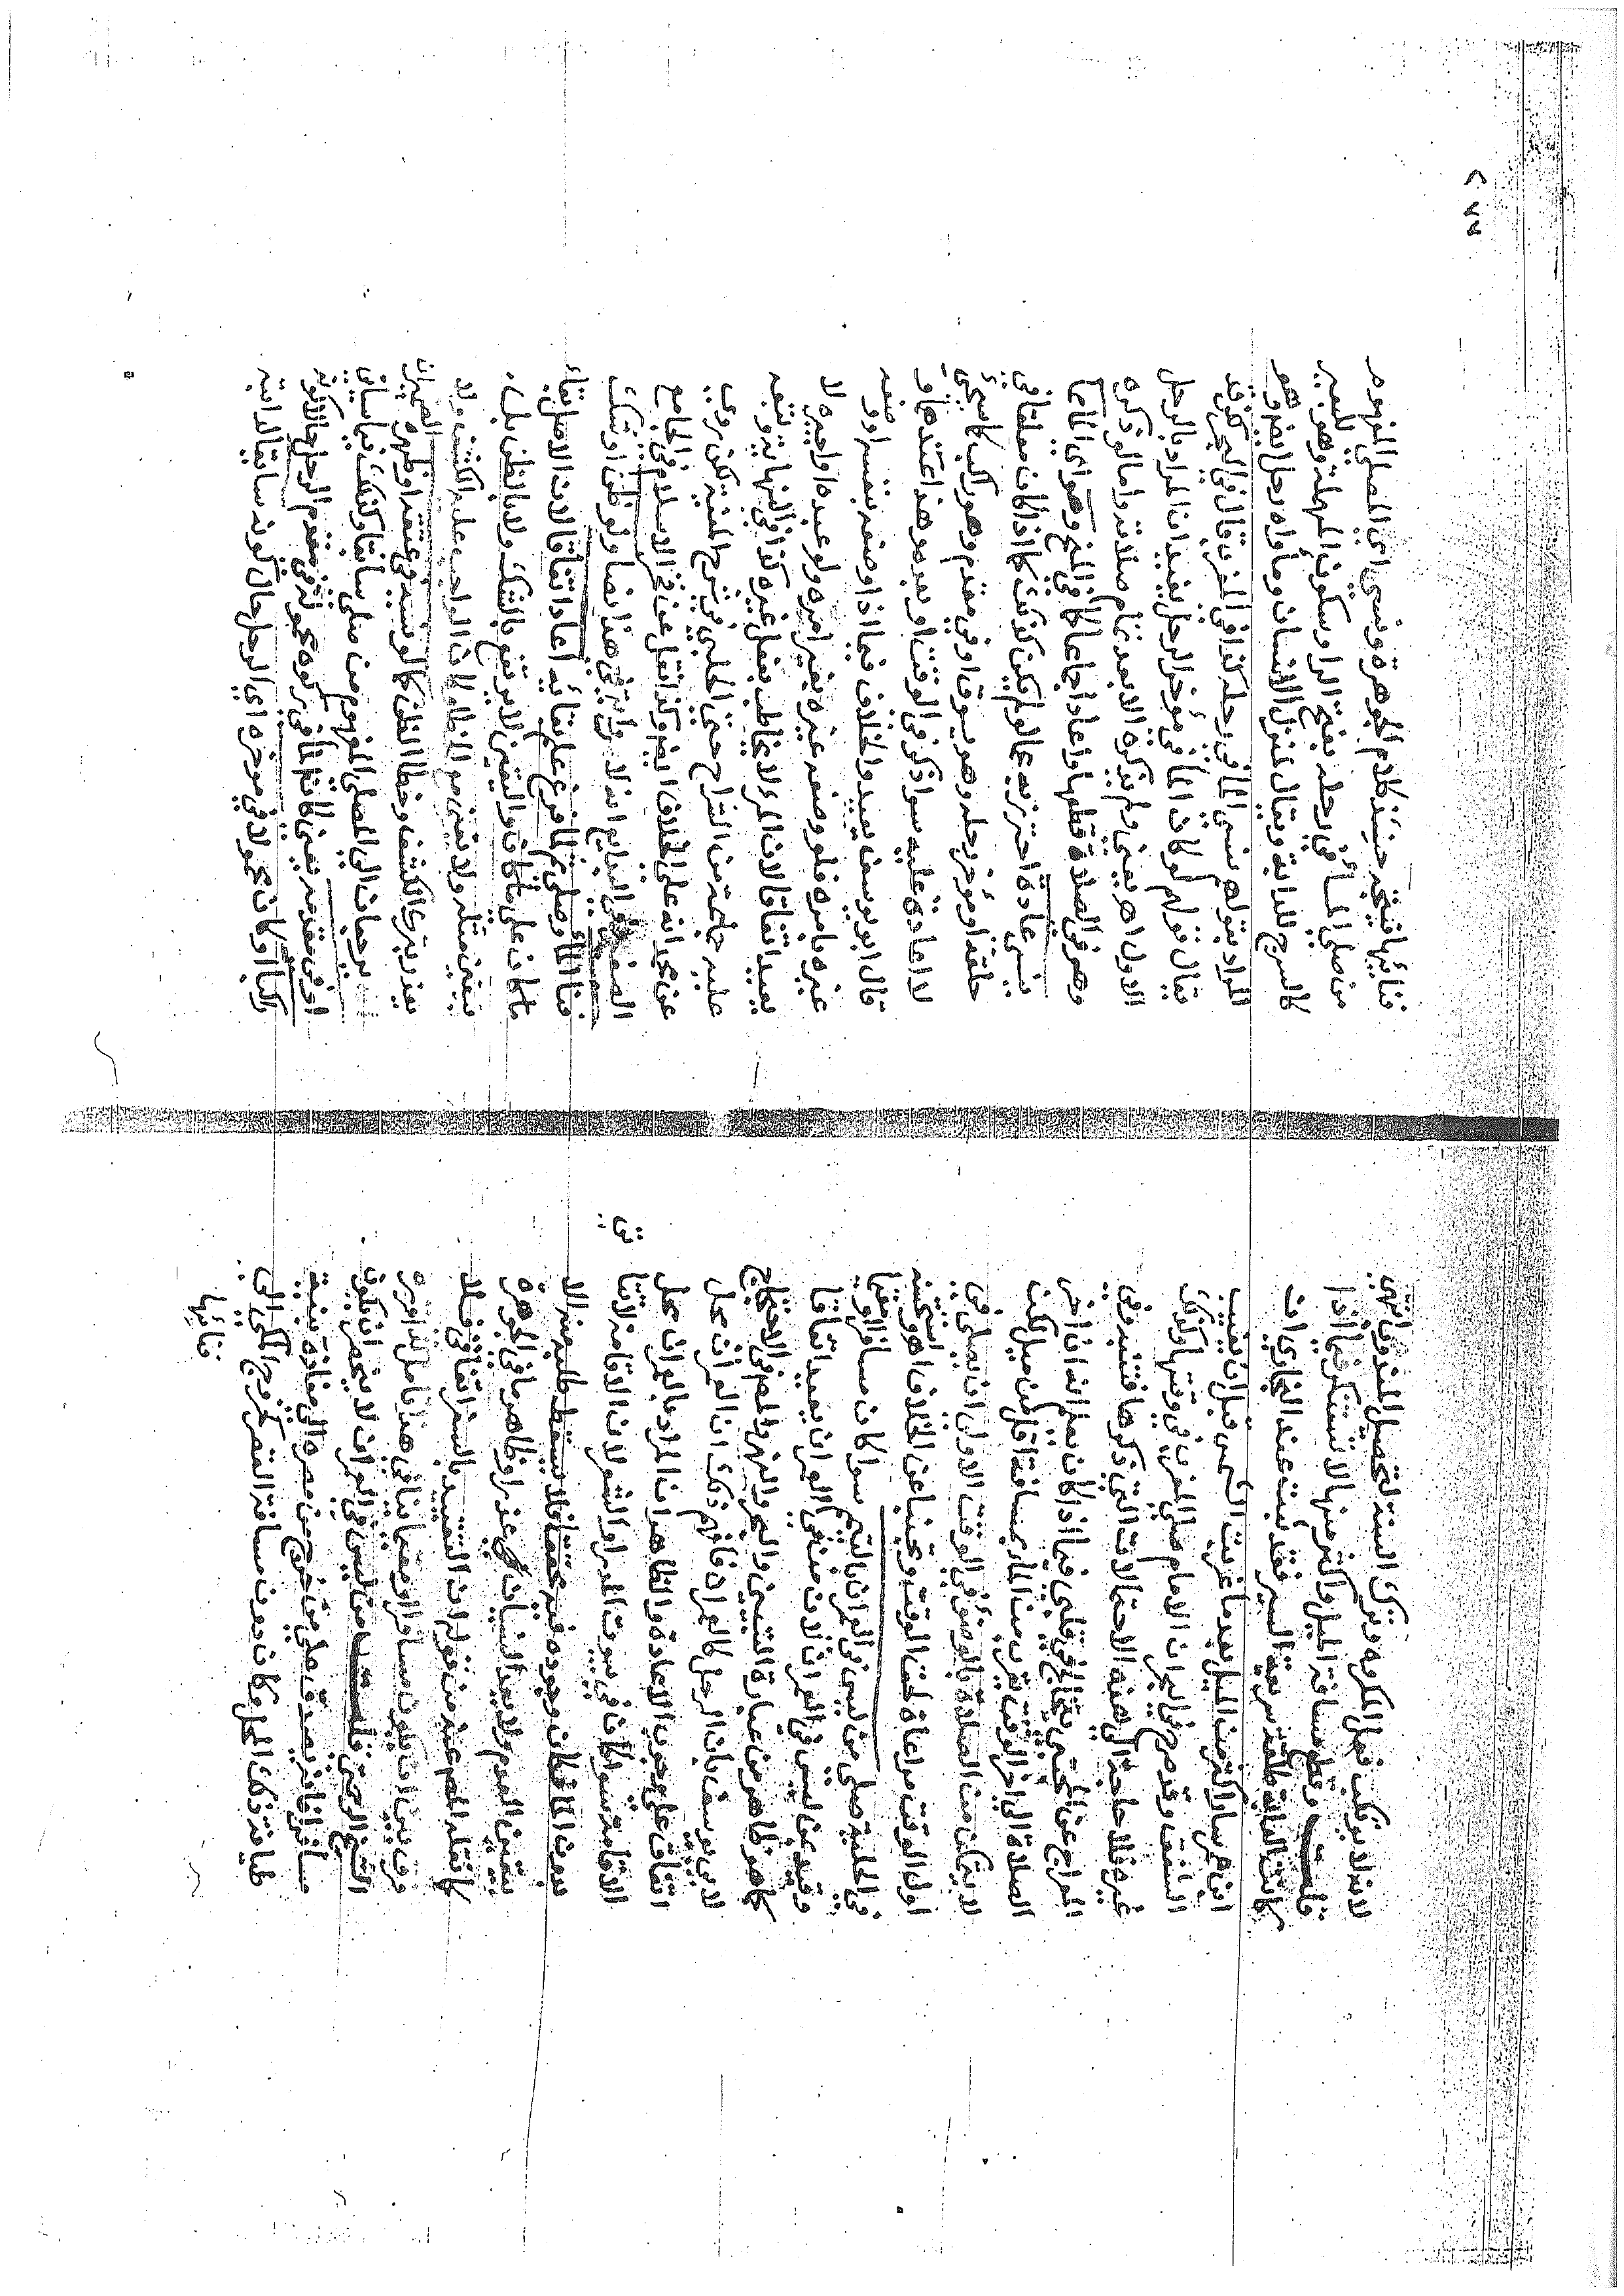 لانه لا يرتكب فعل المكروه وترك السنة لتحصيل المندوب انتهى
قلت وقطع مسافة الميل واكثر منها لا تستنكر فيما اذا
كانت الدابة سريعة السير فقد ثبت عند البخاري ان
ابن عمر سار اكثر من الميل بعد ما غربت الشمس قبل ان يغيب
الشفق وقد صرح في البحر ان الامام صلى المغرب في وقتها
غيره فلا حاجة الى هذه الاحتمالات التي ذكرها فتنبه وفي
المعراج عن المجتبى يتخالج في قلبي فيما اذا كان يعلم انه ان اخر
الصلاة الى اخر الوقت يقرب من الماء بمسافة اقل من ميل لكن
لا يتمكن من الصلاة بالوضوء في الوقت الاولى ان يصلي في
اول الوقت مراعاة لحق الوقت وتجنبا عن الخلاف اهـ واستحسنه
في الحلية صلى من ليس في العمران بالتيمم سوا كان مسافرا او مقيما
وقيد بمن ليس في العمران لان من في العمران يعيد اتفاقا
كما هو ظاهر من عبارة التبيين والبحر والنهر وللمص في الاحتجاج
لابي يوسف بان الرحل كالعمران فافهم وذكر ان العمران محل
اتفاق على وجوب الاعادة والظاهر ان المراد بالعمران محل
الاقامة سوا كان في بيوت المدر او الشعر لان الاقامة لا تتاتى
بدون الماء فكان وجوده فيه محققا فلا يسقط طلبه منه الا
بتيقن العدم ولا يعد النسيان عذرا وظاهر ما في الجوهرة
كما نقله المص عنه من قوله ان التقييد بالسفر اتفاقي فلا
فرق بين ان يكون مسافرا او مقيما ينافي هذا تامل لما اقره
الشيخ الرحمتي قلت من ليس في العمران لا ينحصر ان يكون
مسافرا فانه يصدق على من خرج من مصره الى مفازة بنية
اقامة وكذا المحل وكان دون مسافة القصر كخروج المكي الى
فنائها
فنائها فيتجه حينئذ كلام الجوهرة ونسي اي المصلي المفهوم
من صلى الماء في رحله بفتح الرا وسكون المهملة وهو للبعير
كالسرج للدابة ويقال لمنزل الانسان وماواه رحل ايضا وهو
المراد بقولهم نسي الماء في رحله كذا في المغرب قال في البحر لكن قد
يقال قولهم لو كان الماء في مؤخر الرحل يفيد ان المراد بالرحل
الاول اهـ يعني ولم يذكره الا بعد تمام صلاته واما لو ذكره
وهو في الصلاة قطعها واعاد اجماعا كما في المنح وهو اي الماء مما
ينسى عادة احترز به عما لو لم يكن كذلك كما اذا كان معلقا في
عنقه او مؤخر رحله وهو يسوق او في مقدم وهو راكب كما سيجئ
لا اعادة عليه سوا ذكر في الوقت او بعده وهذا عندهما و
قال ابو يوسف يعيد والخلاف فيما اذا وضعه بنفسه او وضعه
غيره بامره فلو وضعه غيره بغير امره ولو عبده او اجيره لا
يعيد اتفاقا لان المرء لا يخاطب بفعل غيره كذا في النهاية وتبعه
عليه جماعة من الشراح حتى الحلبي في شرح المنية لكن روي
عن محمد انه على الخلاف ايضا وكذا نقل عن فخر الاسلام في الجامع
الصغير وفي البدائع انه لا رواية في هذا نصا ولو ظن او شك
فنا الماء وصلى ثم ظهر عدم فنائه اعاد اتفاقا لان الاصل بقاء
ما كان على ما كان واليقين لا يرتفع بالشك ولا بالظن بل
بيقين مثله ولا يقين مع الظن لان الواجب عليه الكشف ولا
يعذر بترك الكشف وخطا الظن كما لو نسيه في عنقه او ظهره الضميران
يرجعان الى المصلي المفهوم من صلى سابقا وكذلك فيما سياتي
او في مقدمه يعني كائنا الماء في ركوه مجعولة في مقدم الرحل حالكونه
راكبا او كان مجعولا في مؤخره اي الرحل حال كونه سائقا لدابته